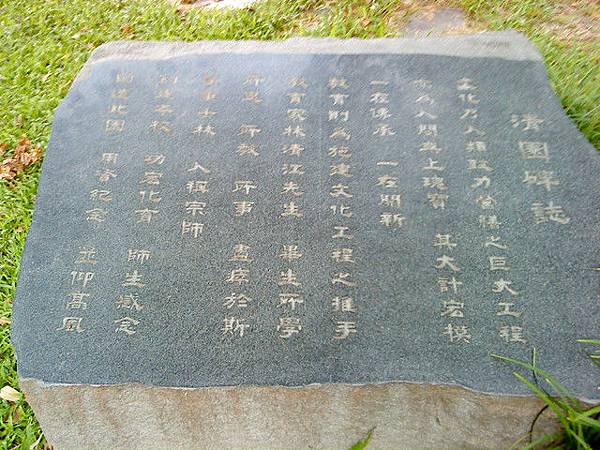 清園碑誌
文化乃人類致力營繕之巨大工程
亦為人間無上瑰寶 其大計宏模
一在傳承 一在開新
教育則為施建文化工程之推手
教育家林清江先生 畢生所學
所思 所教 所事 盡瘁於斯
士林 人稱宗師
創建本校 功宏化育 師生感念
闢建此園 用資紀念 並仰高風